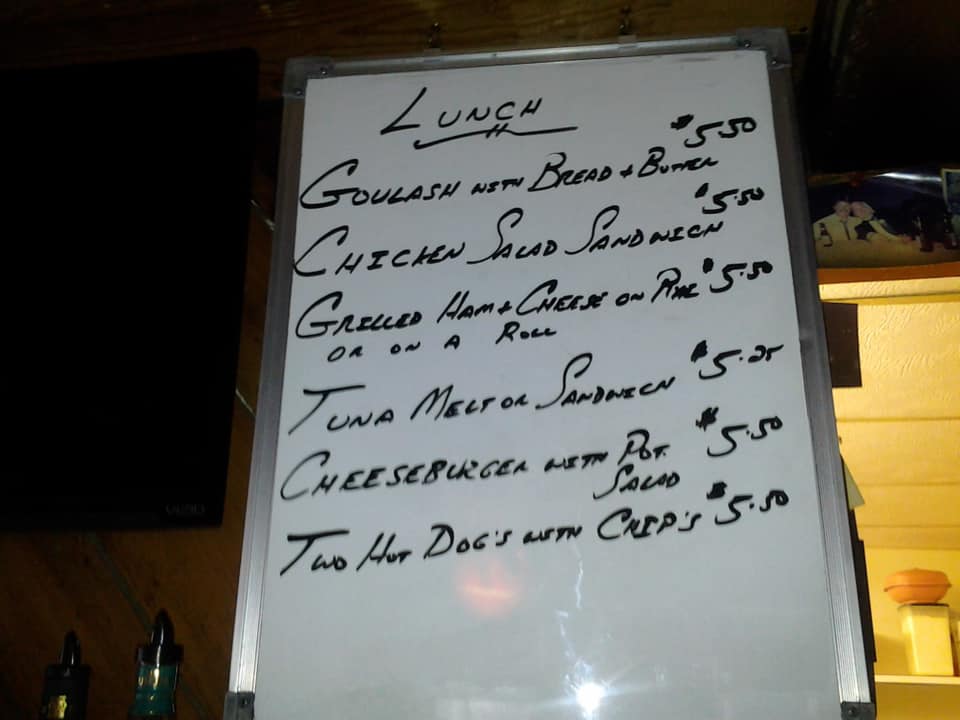 LUNCH
$5.50
GOULASH WITH BREAD + BUTTER
$5.50
CHICKEN SALAD SANDWICH
GRILLED HAM + CHEESE ON RYE $5.50
OR ON A ROLL
TUNA MELT OR SANDWICH $5.25
CHEESEBURGER WITH POT. $5.50
SALAD
TWO HOT DOG'S WITH CHIP'S $5.50
VIZIO